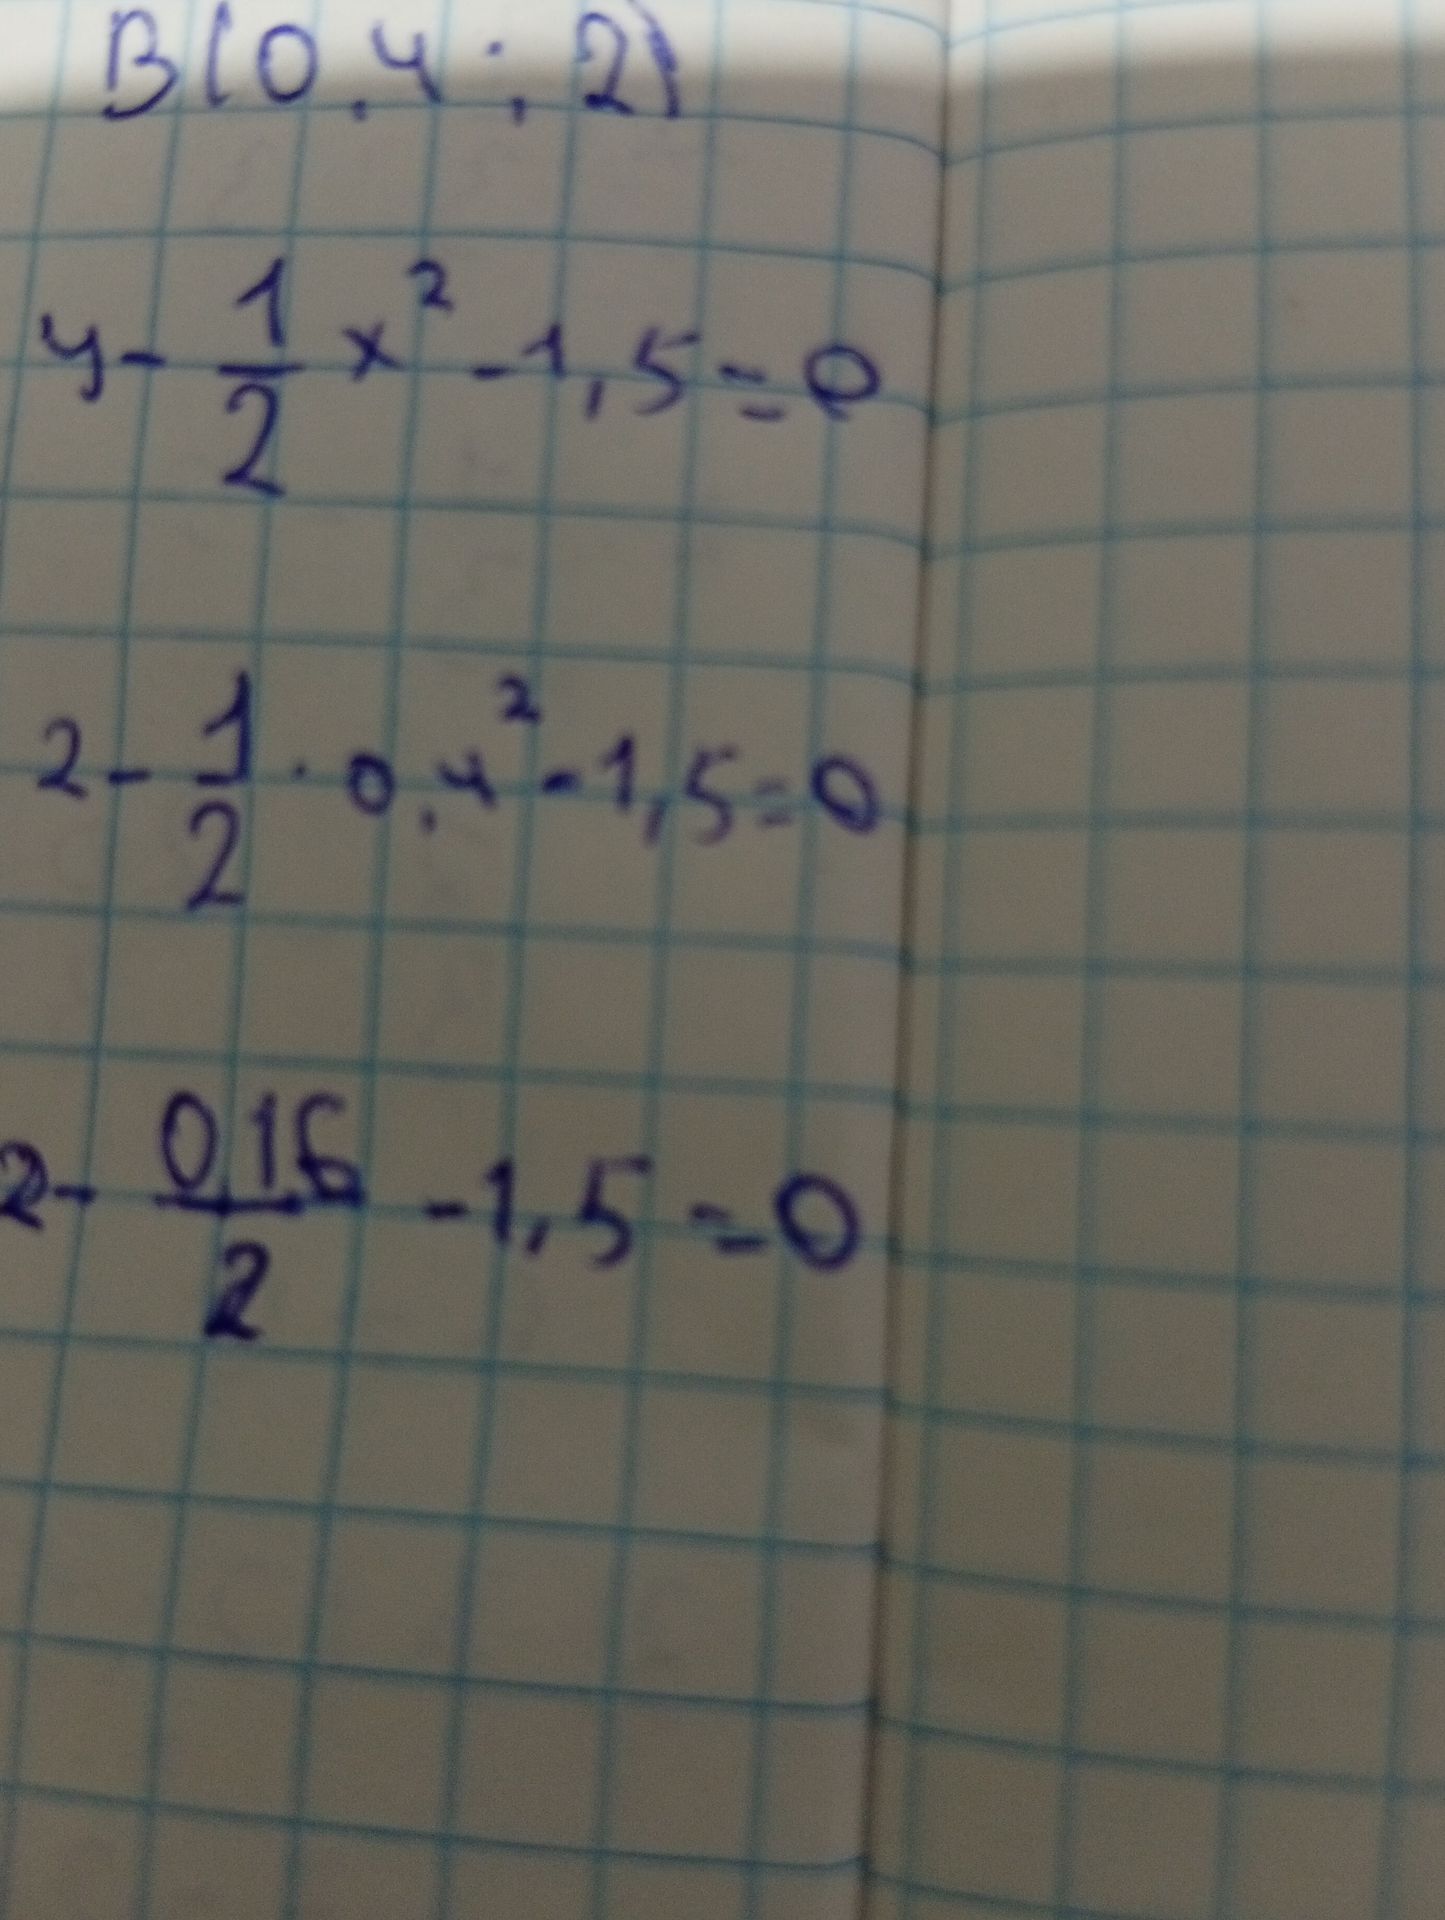 B(0,4; 2)
y - 1/2 x² - 1,5 = 0
2 - 1/2 · 0,4² - 1,5 = 0
2 - 0,16/2 - 1,5 = 0